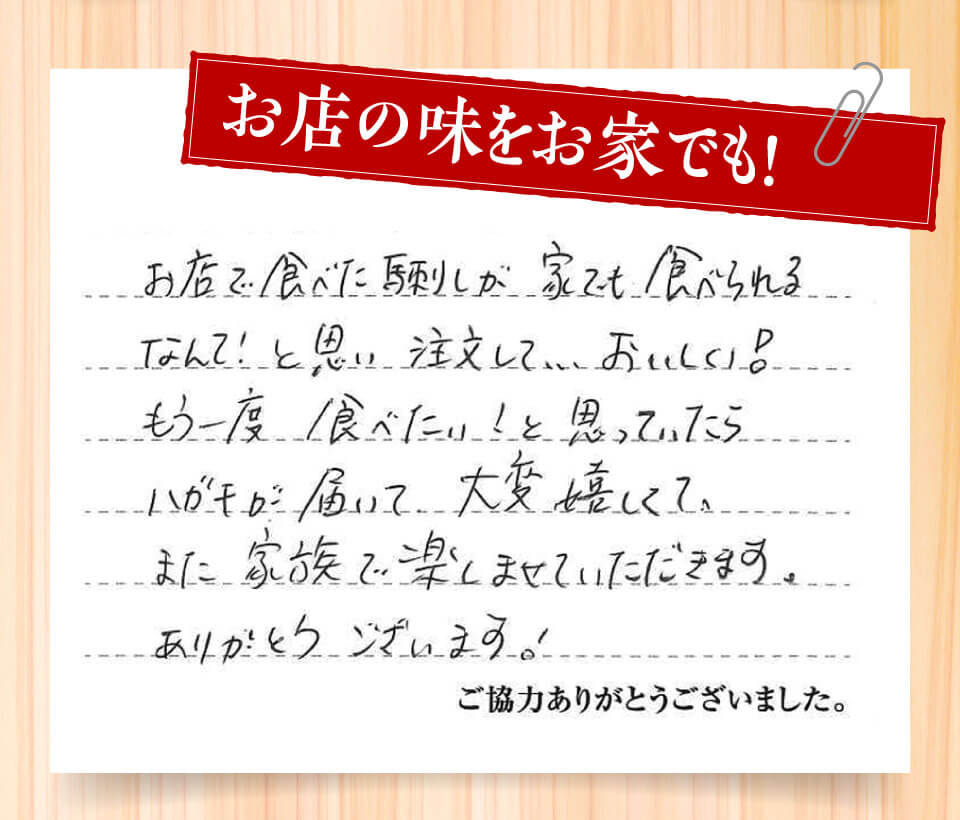 お店の味をお家でも!
お店で食べた馬刺しが 家でも食べられる
なんて!と思い 注文して、、、おいしい!!
もう一度 食べたい!と思っていたら
ハガキが届いて 大変嬉しくて、
また 家族で楽しませていただきます。
ありがとうございます。!
ご協力ありがとうございました。